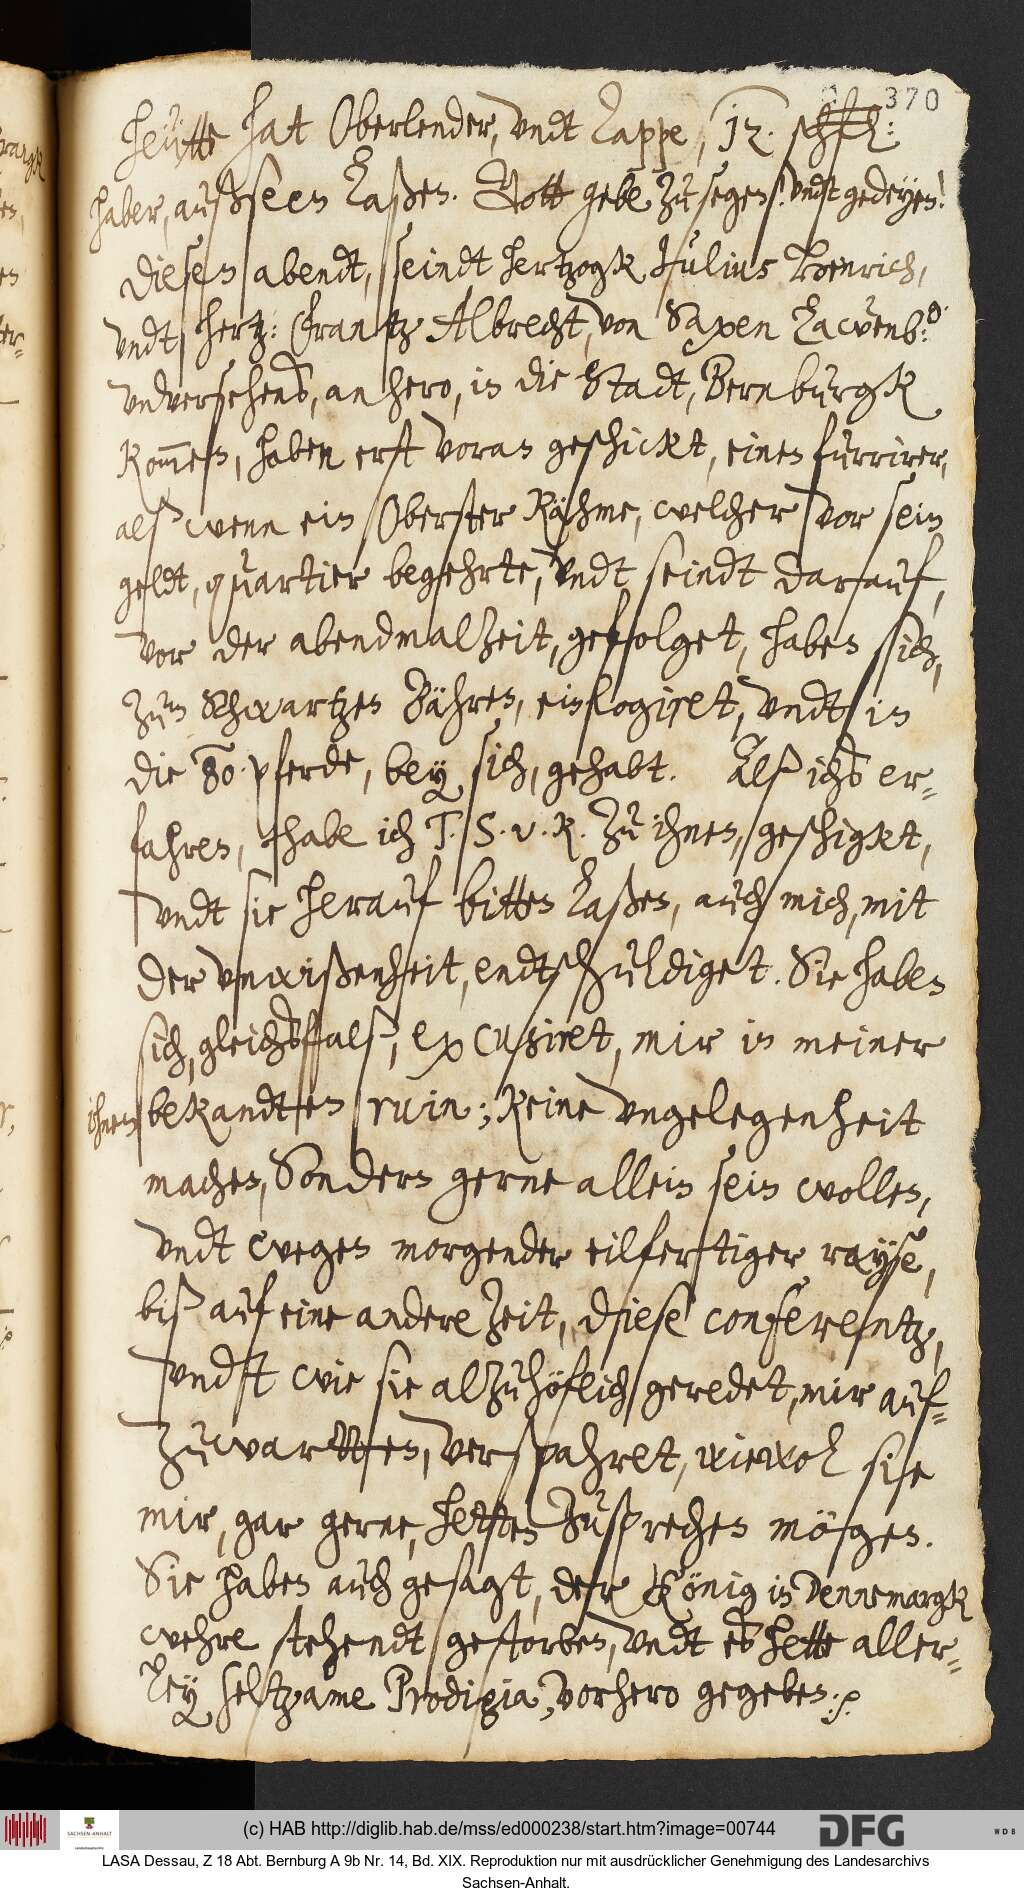 370
Heütte hat Oberlender, vndt Kappe, 12. schfl:
haber, außseen laßen. Gott gebe zu segen! vndt gedeyen!
Diesen abendt, seindt hertzogk Julius Henrich,
vndt hertz: Frantz Albrecht, von Saxen Lawenb:
vnversehens, anhero, in die Stadt, Bernburgk
kommen, haben erst voran geschickt, einen furrirer,
alß wenn ein Oberster kähme, welcher vor sein
geldt, quartier begehrte, vndt seindt darauf,
vor der abendmalzeit, gefolget, haben sich,
zum Schwartzen Bähren, einlogiret, vndt in
die 80. pferde, bey sich, gehabt. Alß ichs er-
fahren, habe ich T. S. v. R. zu ihnen, geschigkt,
vndt sie herauf bitten laßen, auch mich, mit
der vnwißenheit, endtschuldiget. Sie haben
sich, gleichsfalß, excusiret, mir in meiner
ihnen bekandten ruin; keine vngelegenheit
machen, Sondern gerne allein sein wollen,
vndt wegen morgender eilfertiger rayse,
biß auf eine andere zeit, diese conferentz,
vndt wie sie alzuhöflich geredet, mir auf-
zuwartten, verspahret, wiewol sie
mir, gar gerne, hetten zusprechen mögen.
Sie haben auch gesagt, der König in Dennemargk
wehre stehendt gestorben, vndt es hette aller-
ley seltzame Prodigia, vorhero gegeben. p.
(c) HAB http://diglib.hab.de/mss/ed000238/start.htm?image=00744
SACHSEN-ANHALT
DFG
WDB
LASA Dessau, Z 18 Abt. Bernburg A 9b Nr. 14, Bd. XIX. Reproduktion nur mit ausdrücklicher Genehmigung des Landesarchivs
Sachsen-Anhalt.